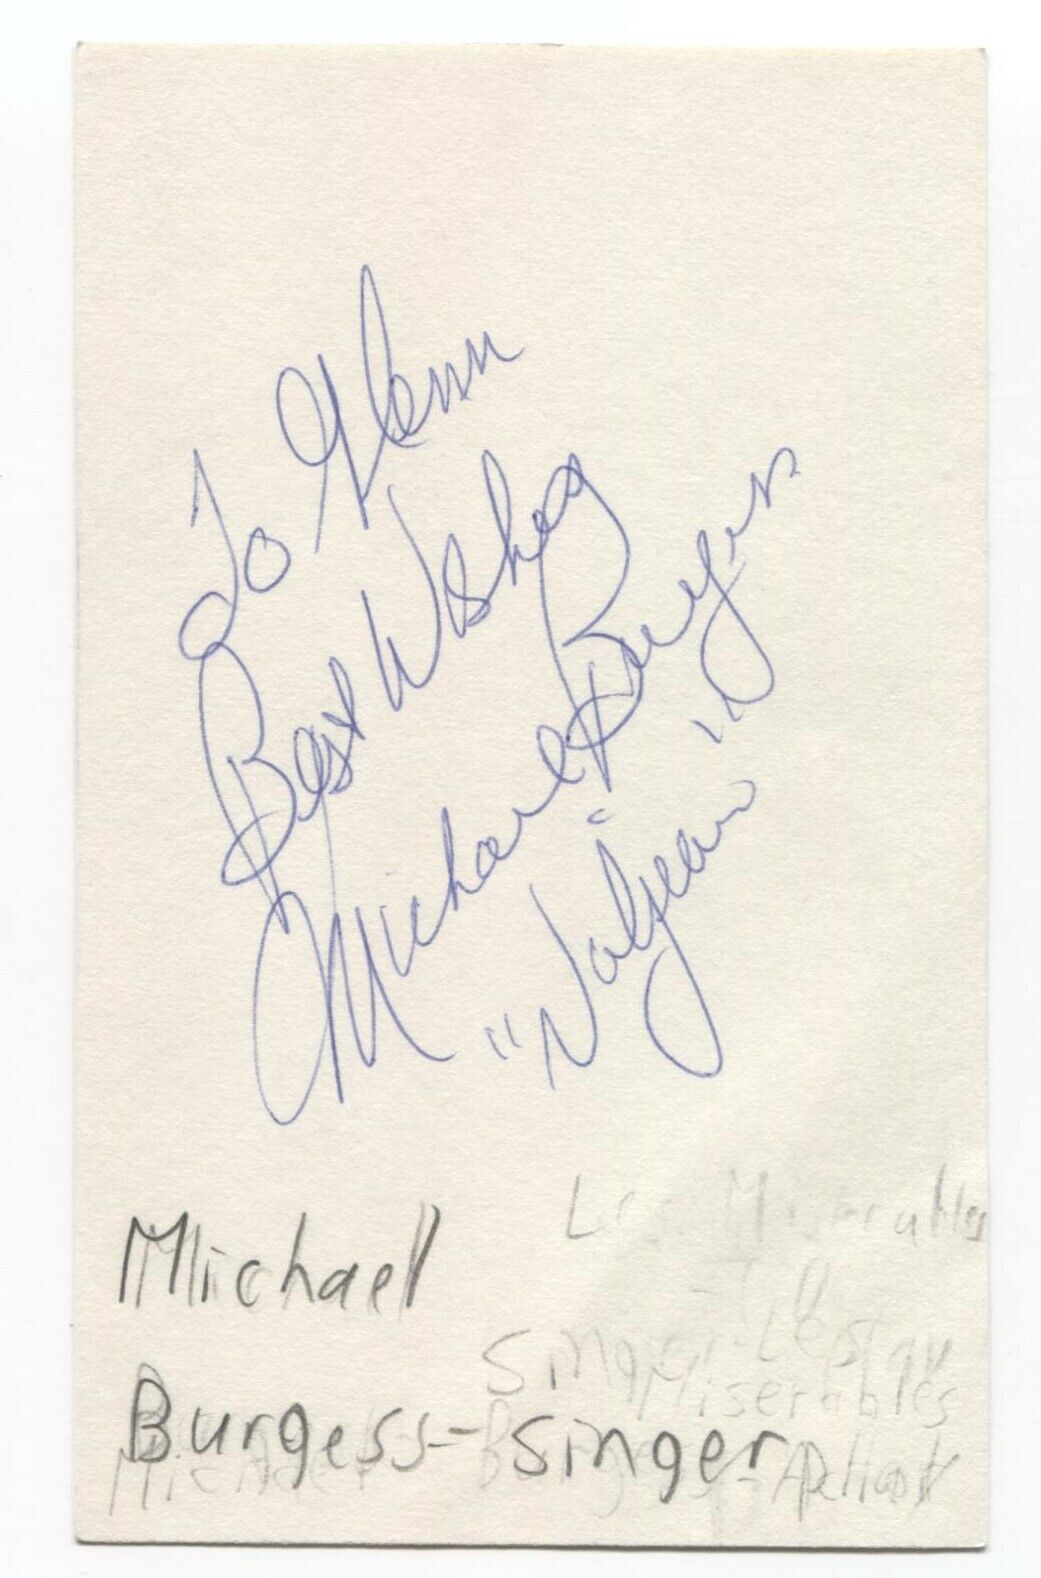 To Glenn
Best Wishes
Michael Burgess
"Valjean"
Les Miserables
Michael
Singer-Les
Miserables
Burgess-Singer
Michael Burgess